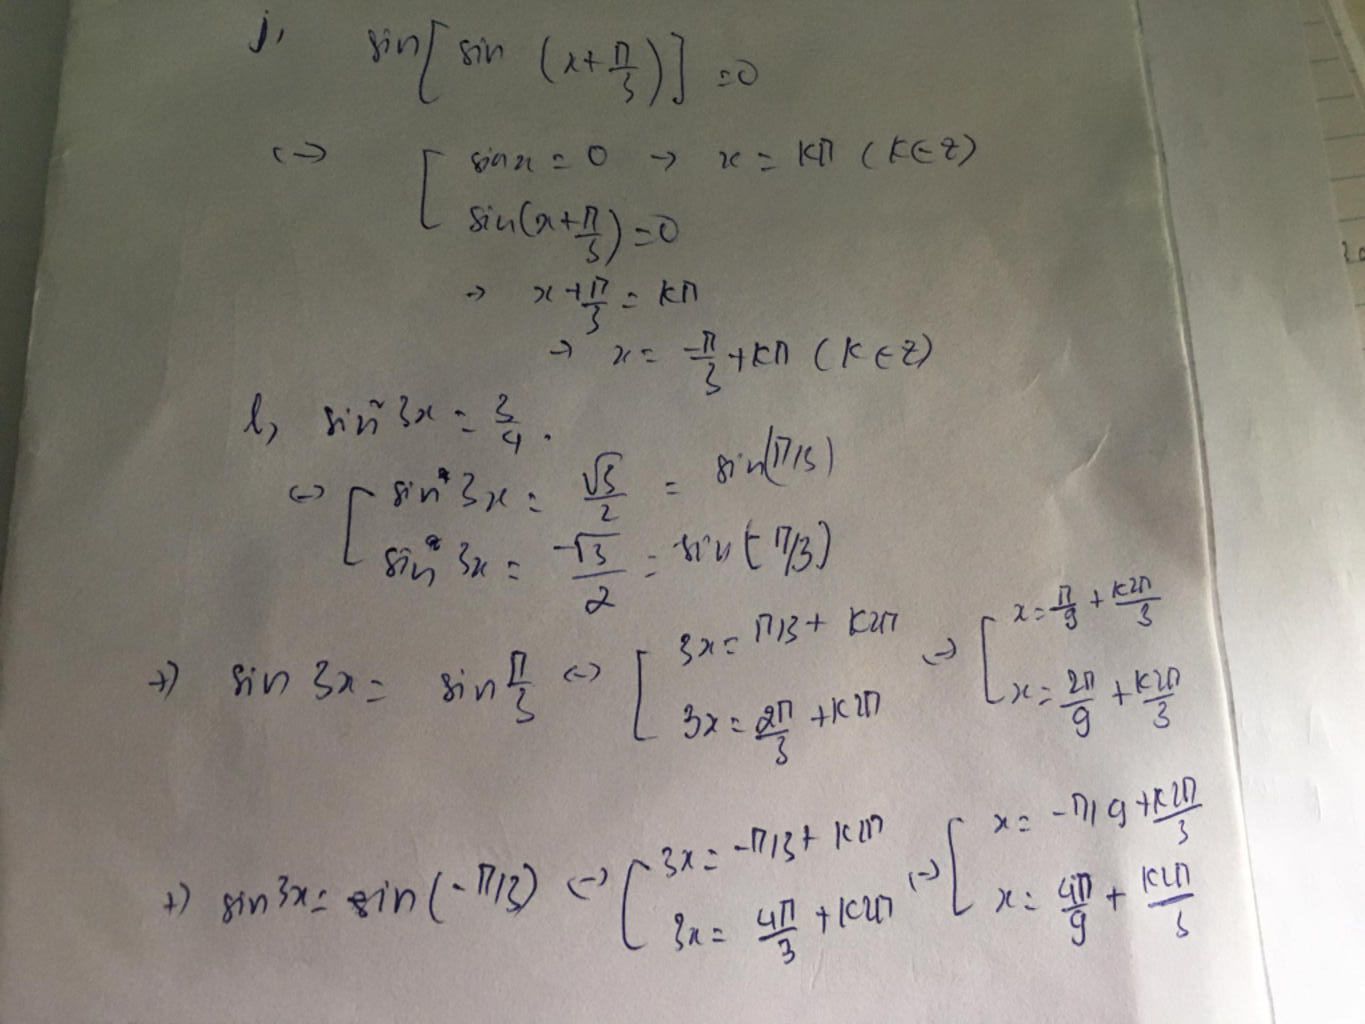 j, sin[sin (x+π/3)] = 0
<-> [ sinx = 0 -> x = kπ (k∈z)
sin(x+π/3) = 0
-> x+π/3 = kπ
-> x = -π/3 + kπ (k∈z)
l, sin² 3x = 3/4.
<-> [ sin 3x = √3/2 = sin(π/3)
sin 3x = -√3/2 = sin(-π/3)
+) sin 3x = sin π/3 <-> [ 3x = π/3 + k2π <-> [ x = π/9 + k2π/3
3x = 2π/3 + k2π x = 2π/9 + k2π/3
+) sin3x = sin(-π/3) <-> [ 3x = -π/3 + k2π <-> [ x = -π/9 + k2π/3
3x = 4π/3 + k2π x = 4π/9 + k2π/3